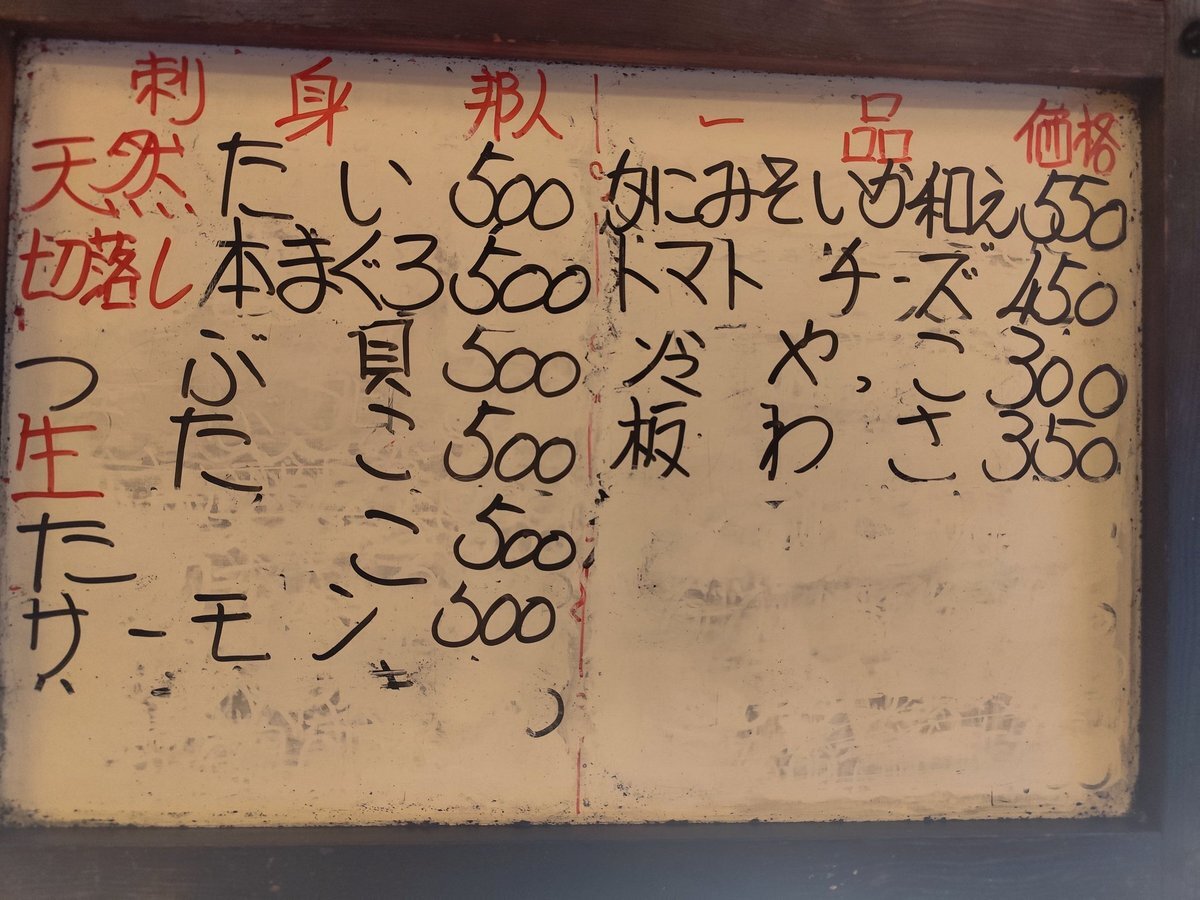 刺身 邦人
天然 たい 500
切落し 本まぐろ 500
つぶ貝 500
生たこ 500
たこ 500
サーモン 500
一品 価格
かにみそいか和え 550
トマト チーズ 450
冷やっこ 300
板わさ 350